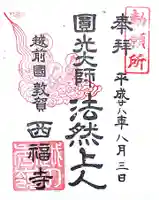 奉拝
勅願所
平成廿八年八月三日
圓光大師 法然上人
越前國敦賀
西福寺